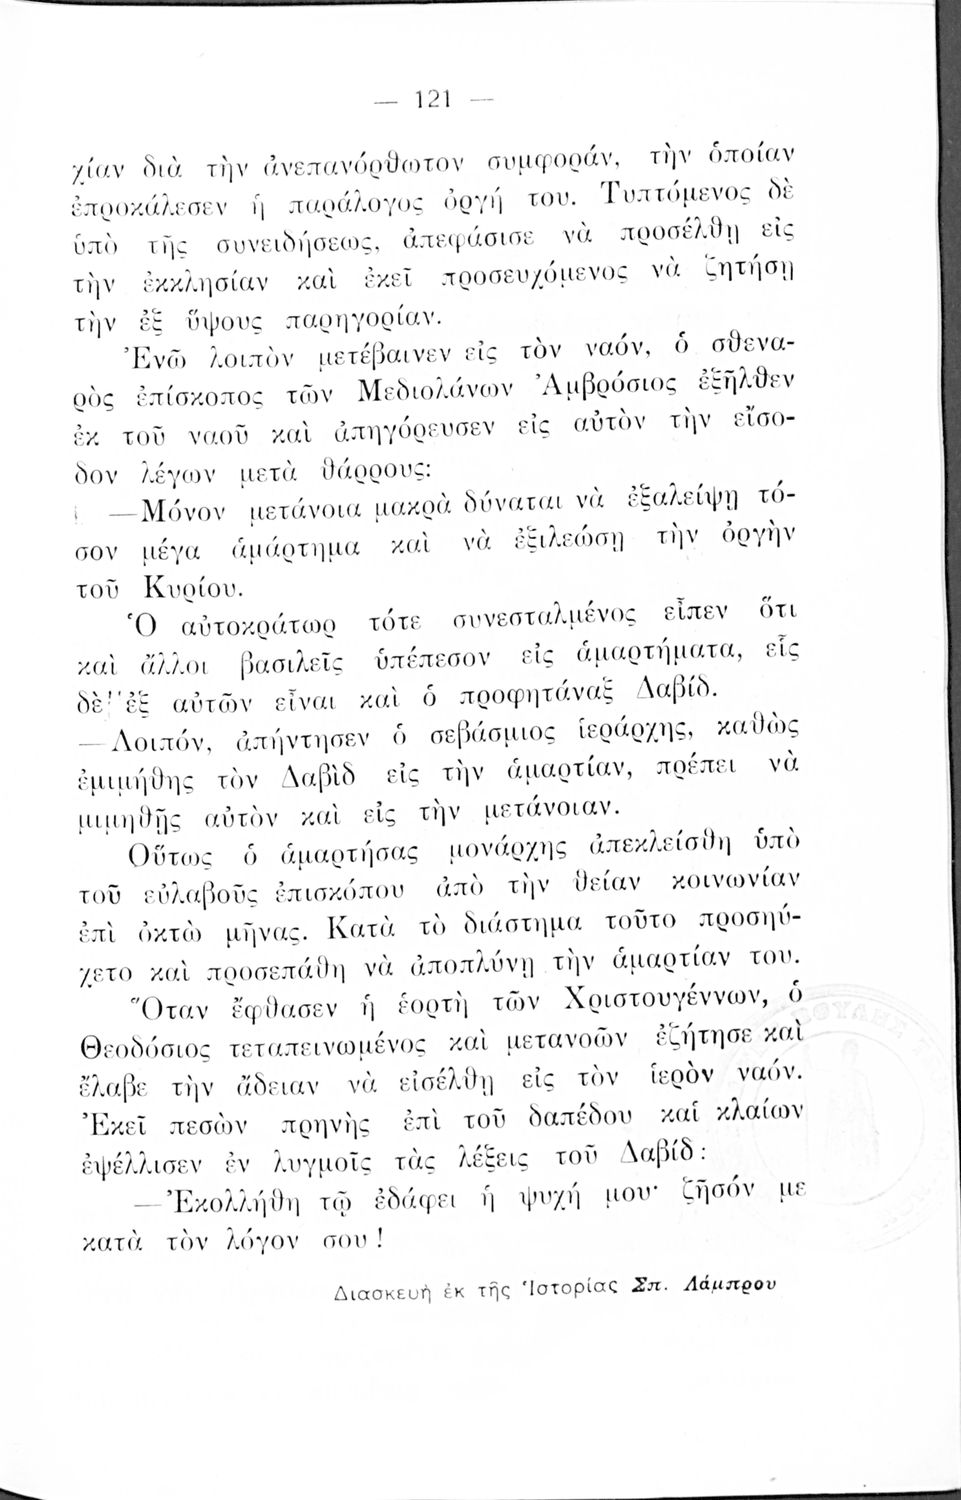 — 121 —
χίαν διὰ τὴν ἀνεπανόρθωτον συμφοράν, τὴν ὁποίαν
ἐπροκάλεσεν ἡ παράλογος ὀργή του. Τυπτόμενος δὲ
ὑπὸ τῆς συνειδήσεως, ἀπεφάσισε νὰ προσέλθῃ εἰς
τὴν ἐκκλησίαν καὶ ἐκεῖ προσευχόμενος νὰ ζητήσῃ
τὴν ἐξ ὕψους παρηγορίαν.
Ἐνῶ λοιπὸν μετέβαινεν εἰς τὸν ναόν, ὁ σθενα-
ρὸς ἐπίσκοπος τῶν Μεδιολάνων Ἀμβρόσιος ἐξῆλθεν
ἐκ τοῦ ναοῦ καὶ ἀπηγόρευσεν εἰς αὐτὸν τὴν εἴσο-
δον λέγων μετὰ θάρρους:
—Μόνον μετάνοια μακρὰ δύναται νὰ ἐξαλείψῃ τό-
σον μέγα ἁμάρτημα καὶ νὰ ἐξιλεώσῃ τὴν ὀργὴν
τοῦ Κυρίου.
Ὁ αὐτοκράτωρ τότε συνεσταλμένος εἶπεν ὅτι
καὶ ἄλλοι βασιλεῖς ὑπέπεσον εἰς ἁμαρτήματα, εἷς
δὲ ἐξ αὐτῶν εἶναι καὶ ὁ προφητάναξ Δαβίδ.
—Λοιπόν, ἀπήντησεν ὁ σεβάσμιος ἱεράρχης, καθὼς
ἐμιμήθης τὸν Δαβὶδ εἰς τὴν ἁμαρτίαν, πρέπει νὰ
μιμηθῇς αὐτὸν καὶ εἰς τὴν μετάνοιαν.
Οὕτως ὁ ἁμαρτήσας μονάρχης ἀπεκλείσθη ὑπὸ
τοῦ εὐλαβοῦς ἐπισκόπου ἀπὸ τὴν θείαν κοινωνίαν
ἐπὶ ὀκτὼ μῆνας. Κατὰ τὸ διάστημα τοῦτο προσηύ-
χετο καὶ προσεπάθη νὰ ἀποπλύνῃ τὴν ἁμαρτίαν του.
Ὅταν ἔφθασεν ἡ ἑορτὴ τῶν Χριστουγέννων, ὁ
Θεοδόσιος τεταπεινωμένος καὶ μετανοῶν ἐζήτησε καὶ
ἔλαβε τὴν ἄδειαν νὰ εἰσέλθῃ εἰς τὸν ἱερὸν ναόν.
Ἐκεῖ πεσὼν πρηνὴς ἐπὶ τοῦ δαπέδου καί κλαίων
ἐψέλλισεν ἐν λυγμοῖς τὰς λέξεις τοῦ Δαβίδ:
—Ἐκολλήθη τῷ ἐδάφει ἡ ψυχή μου· ζῆσόν με
κατὰ τὸν λόγον σου!
Διασκευὴ ἐκ τῆς Ἱστορίας Σπ. Λάμπρου